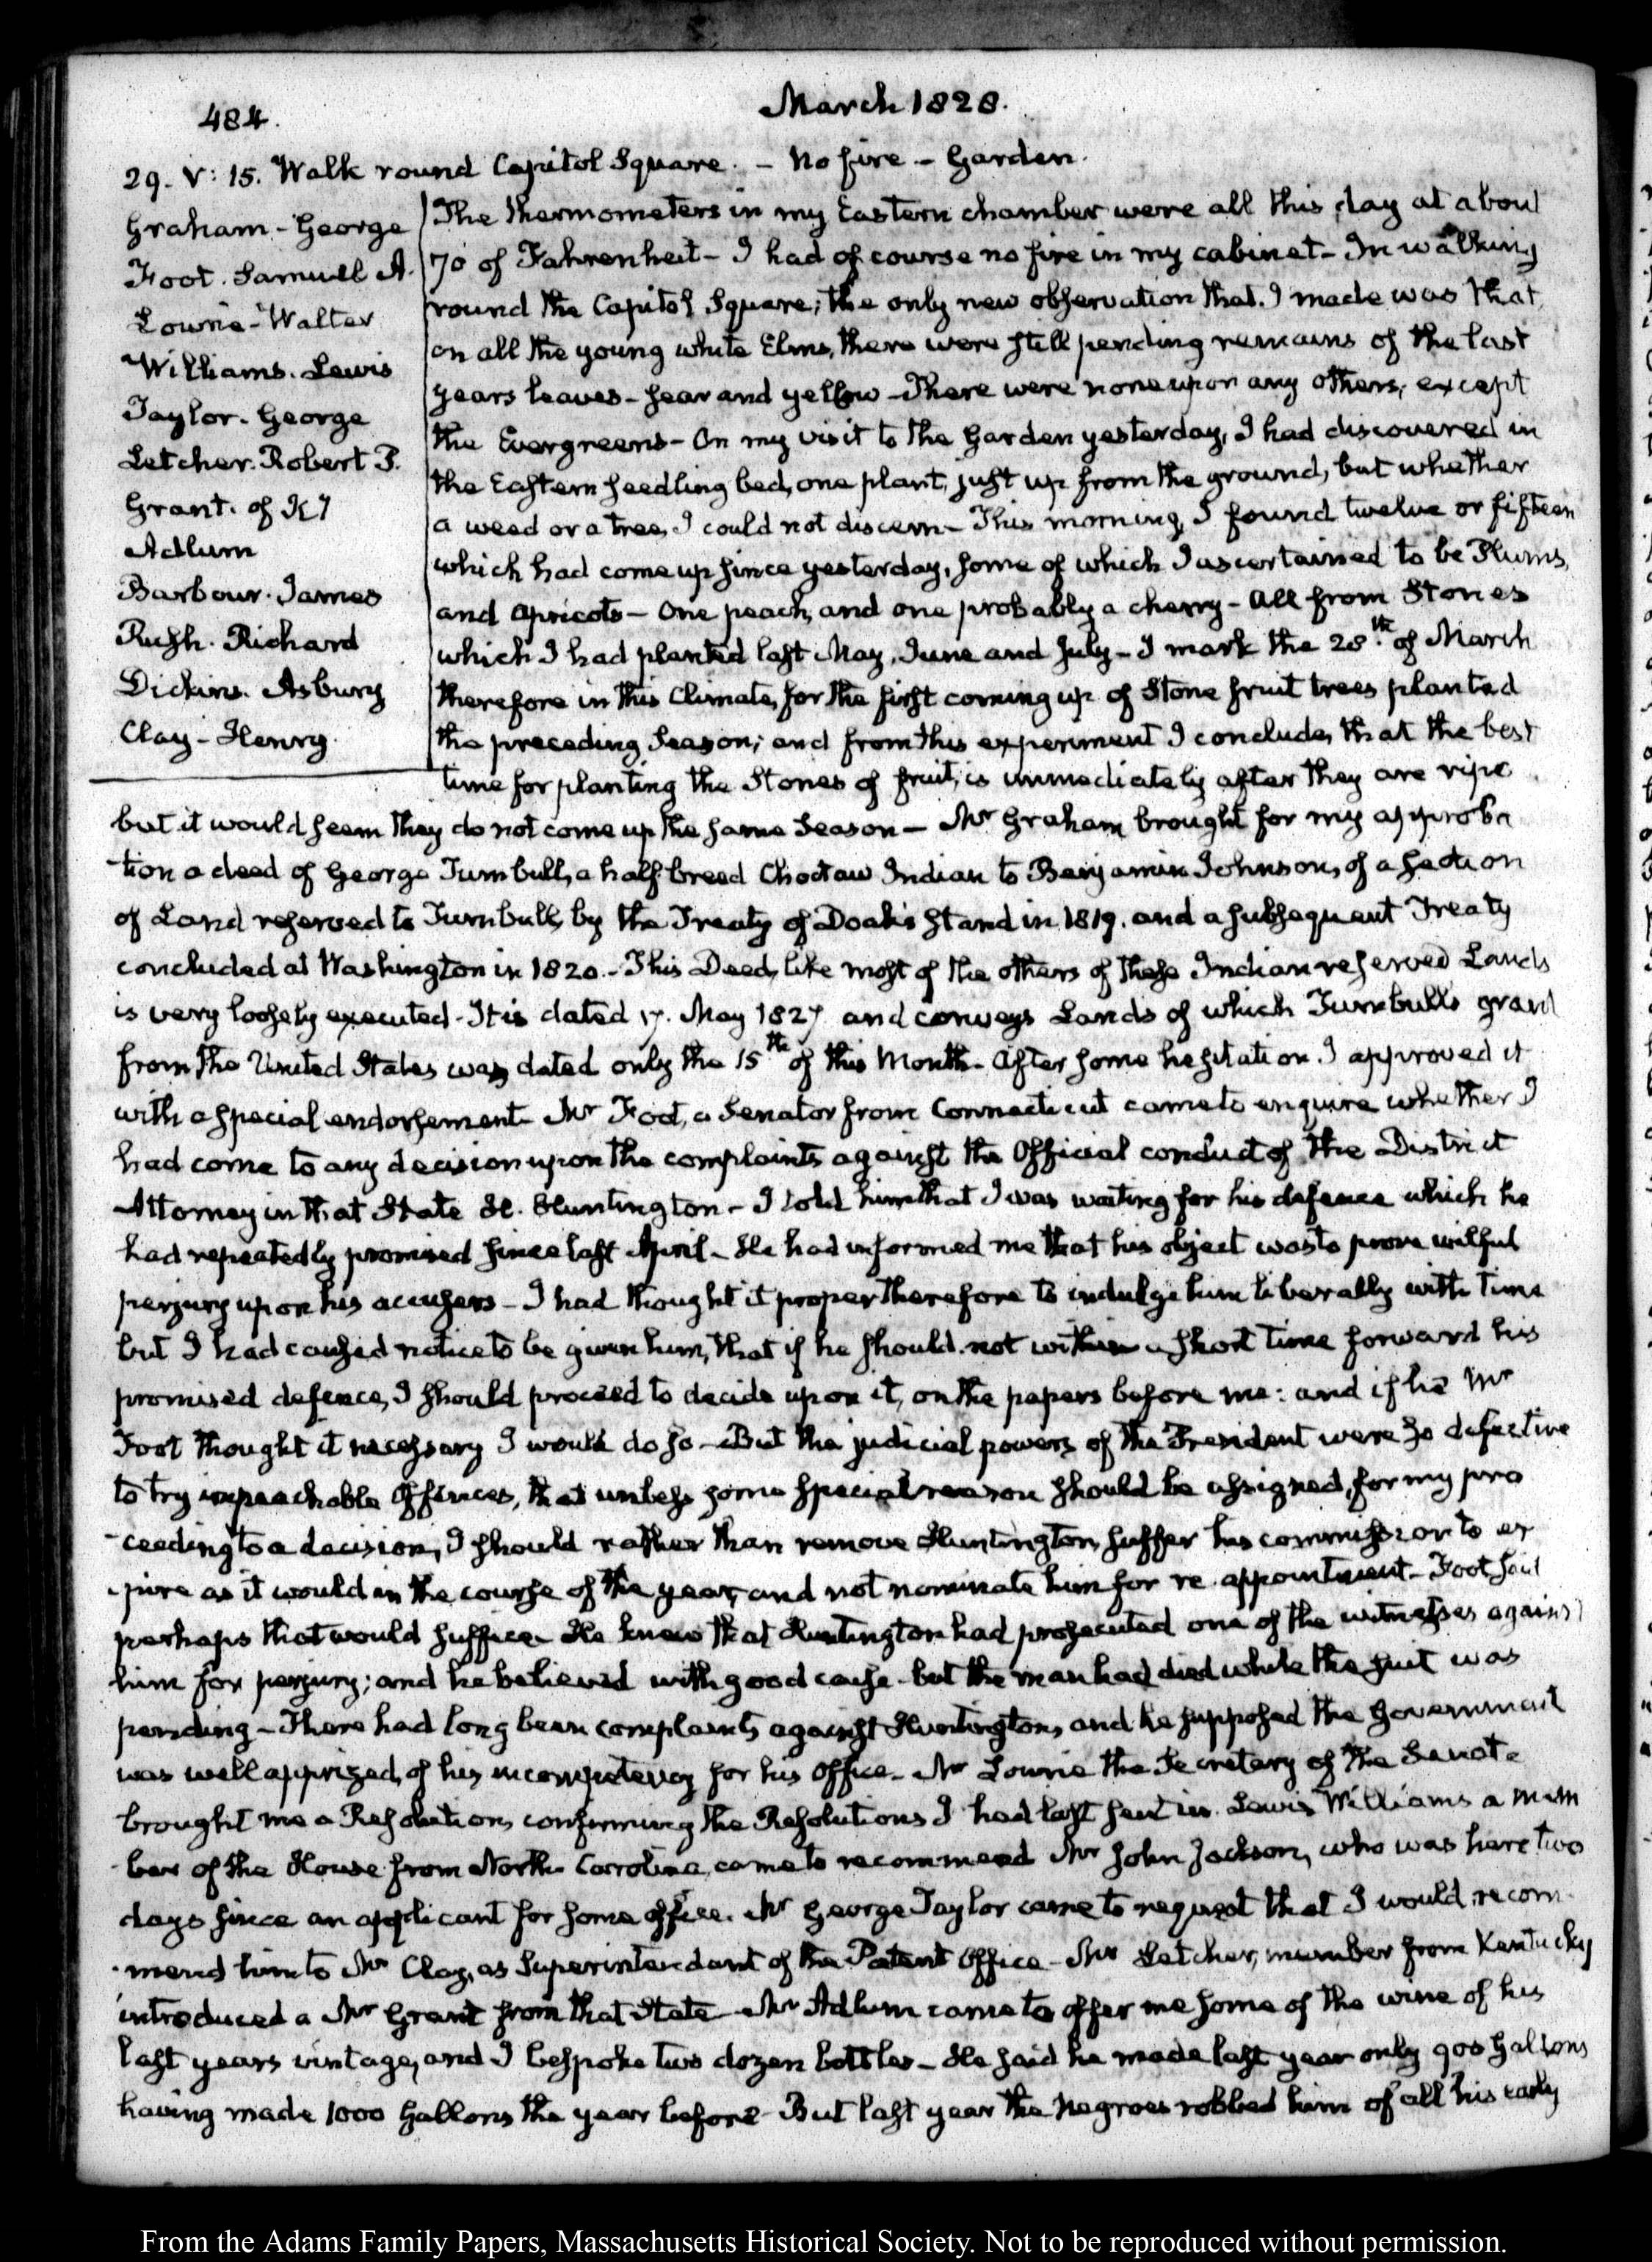 484.
March 1828.
29. V: 15. Walk round Capitol Square. - No fire - Garden.
Graham - George
Foot. Samuel A.
Lowrie - Walter
Williams. Lewis
Taylor. George
Letcher. Robert P.
Grant. of Ky
Adlum
Barbour. James
Rush. Richard
Dickins. Asbury
Clay - Henry.
The thermometers in my Eastern chamber were all this day at about
70 of Fahrenheit - I had of course no fire in my cabinet - In walking
round the Capitol Square, the only new observation that I made was that
on all the young white Elms, there were still pending remains of the last
years leaves - sear and yellow - There were none upon any others, except
the Evergreens - On my visit to the Garden yesterday, I had discovered in
the Eastern seedling bed, one plant, just up from the ground, but whether
a weed or a tree, I could not discern - This morning, I found twelve or fifteen
which had come up since yesterday, some of which I ascertained to be Plums,
and Apricots - One peach, and one probably a cherry - All from Stones
which I had planted last May, June and July - I mark the 28.th of March
therefore in this Climate, for the first coming up of Stone fruit trees planted
the preceding Season; and from this experiment I conclude, that the best
time for planting the Stones of fruit, is immediately after they are ripe
but it would seem they do not come up the same Season - Mr Graham brought for my approba
-tion a deed of George Turnbull, a half breed Choctaw Indian to Benjamin Johnson, of a section
of Land reserved to Turnbull, by the Treaty of Doak's Stand in 1819. and a subsequent Treaty
concluded at Washington in 1820. - This Deed, like most of the others of these Indian reserved Lands
is very loosely executed - It is dated 17. May 1827 and conveys Lands of which Turnbulls grant
from the United States was dated only the 15th of this Month. After some hesitation I approved it
with a special endorsement - Mr Foot, a Senator from Connecticut came to enquire whether I
had come to any decision upon the complaints against the Official conduct of the District
Attorney in that State H. Huntington - I told him that I was waiting for his defence which he
had repeatedly promised since last April - He had informed me that his object was to prove wilful
perjury upon his accusers - I had thought it proper therefore to indulge him liberally with time
but I had caused notice to be given him, that if he should not within a short time forward his
promised defence, I should proceed to decide upon it, on the papers before me: and if he Mr
Foot thought it necessary I would do so - But the judicial powers of the President were so defective
to try impeachable Offences, that unless some special reason should be assigned, for my pro
-ceeding to a decision, I should rather than remove Huntington, suffer his commission to ex
-pire as it would in the course of the year, and not nominate him for re-appointment - Foot said
perhaps that would suffice - He knew that Huntington had prosecuted one of the witnesses against
him for perjury; and he believed with good cause - but the man had died while the suit was
pending - There had long been complaints against Huntington, and he supposed the Government
was well apprized, of his incompetency for his Office - Mr Lowrie the Secretary of the Senate
brought me a Resolution, confirming the Resolutions I had last sent in. Lewis Williams a mem
-ber of the House from North-Carolina, came to recommend Mr John Jackson, who was here two
days since an applicant for some office. Mr George Taylor came to request that I would recom
-mend him to Mr Clay, as Superintendant of the Patent Office - Mr Letcher, member from Kentucky
introduced a Mr Grant from that State - Mr Adlum came to offer me some of the wine of his
last years vintage, and I bespoke two dozen bottles - He said he made last year only 900 Gallons
having made 1000 Gallons the year before - But last year the Negroes robbed him of all his early
From the Adams Family Papers, Massachusetts Historical Society. Not to be reproduced without permission.